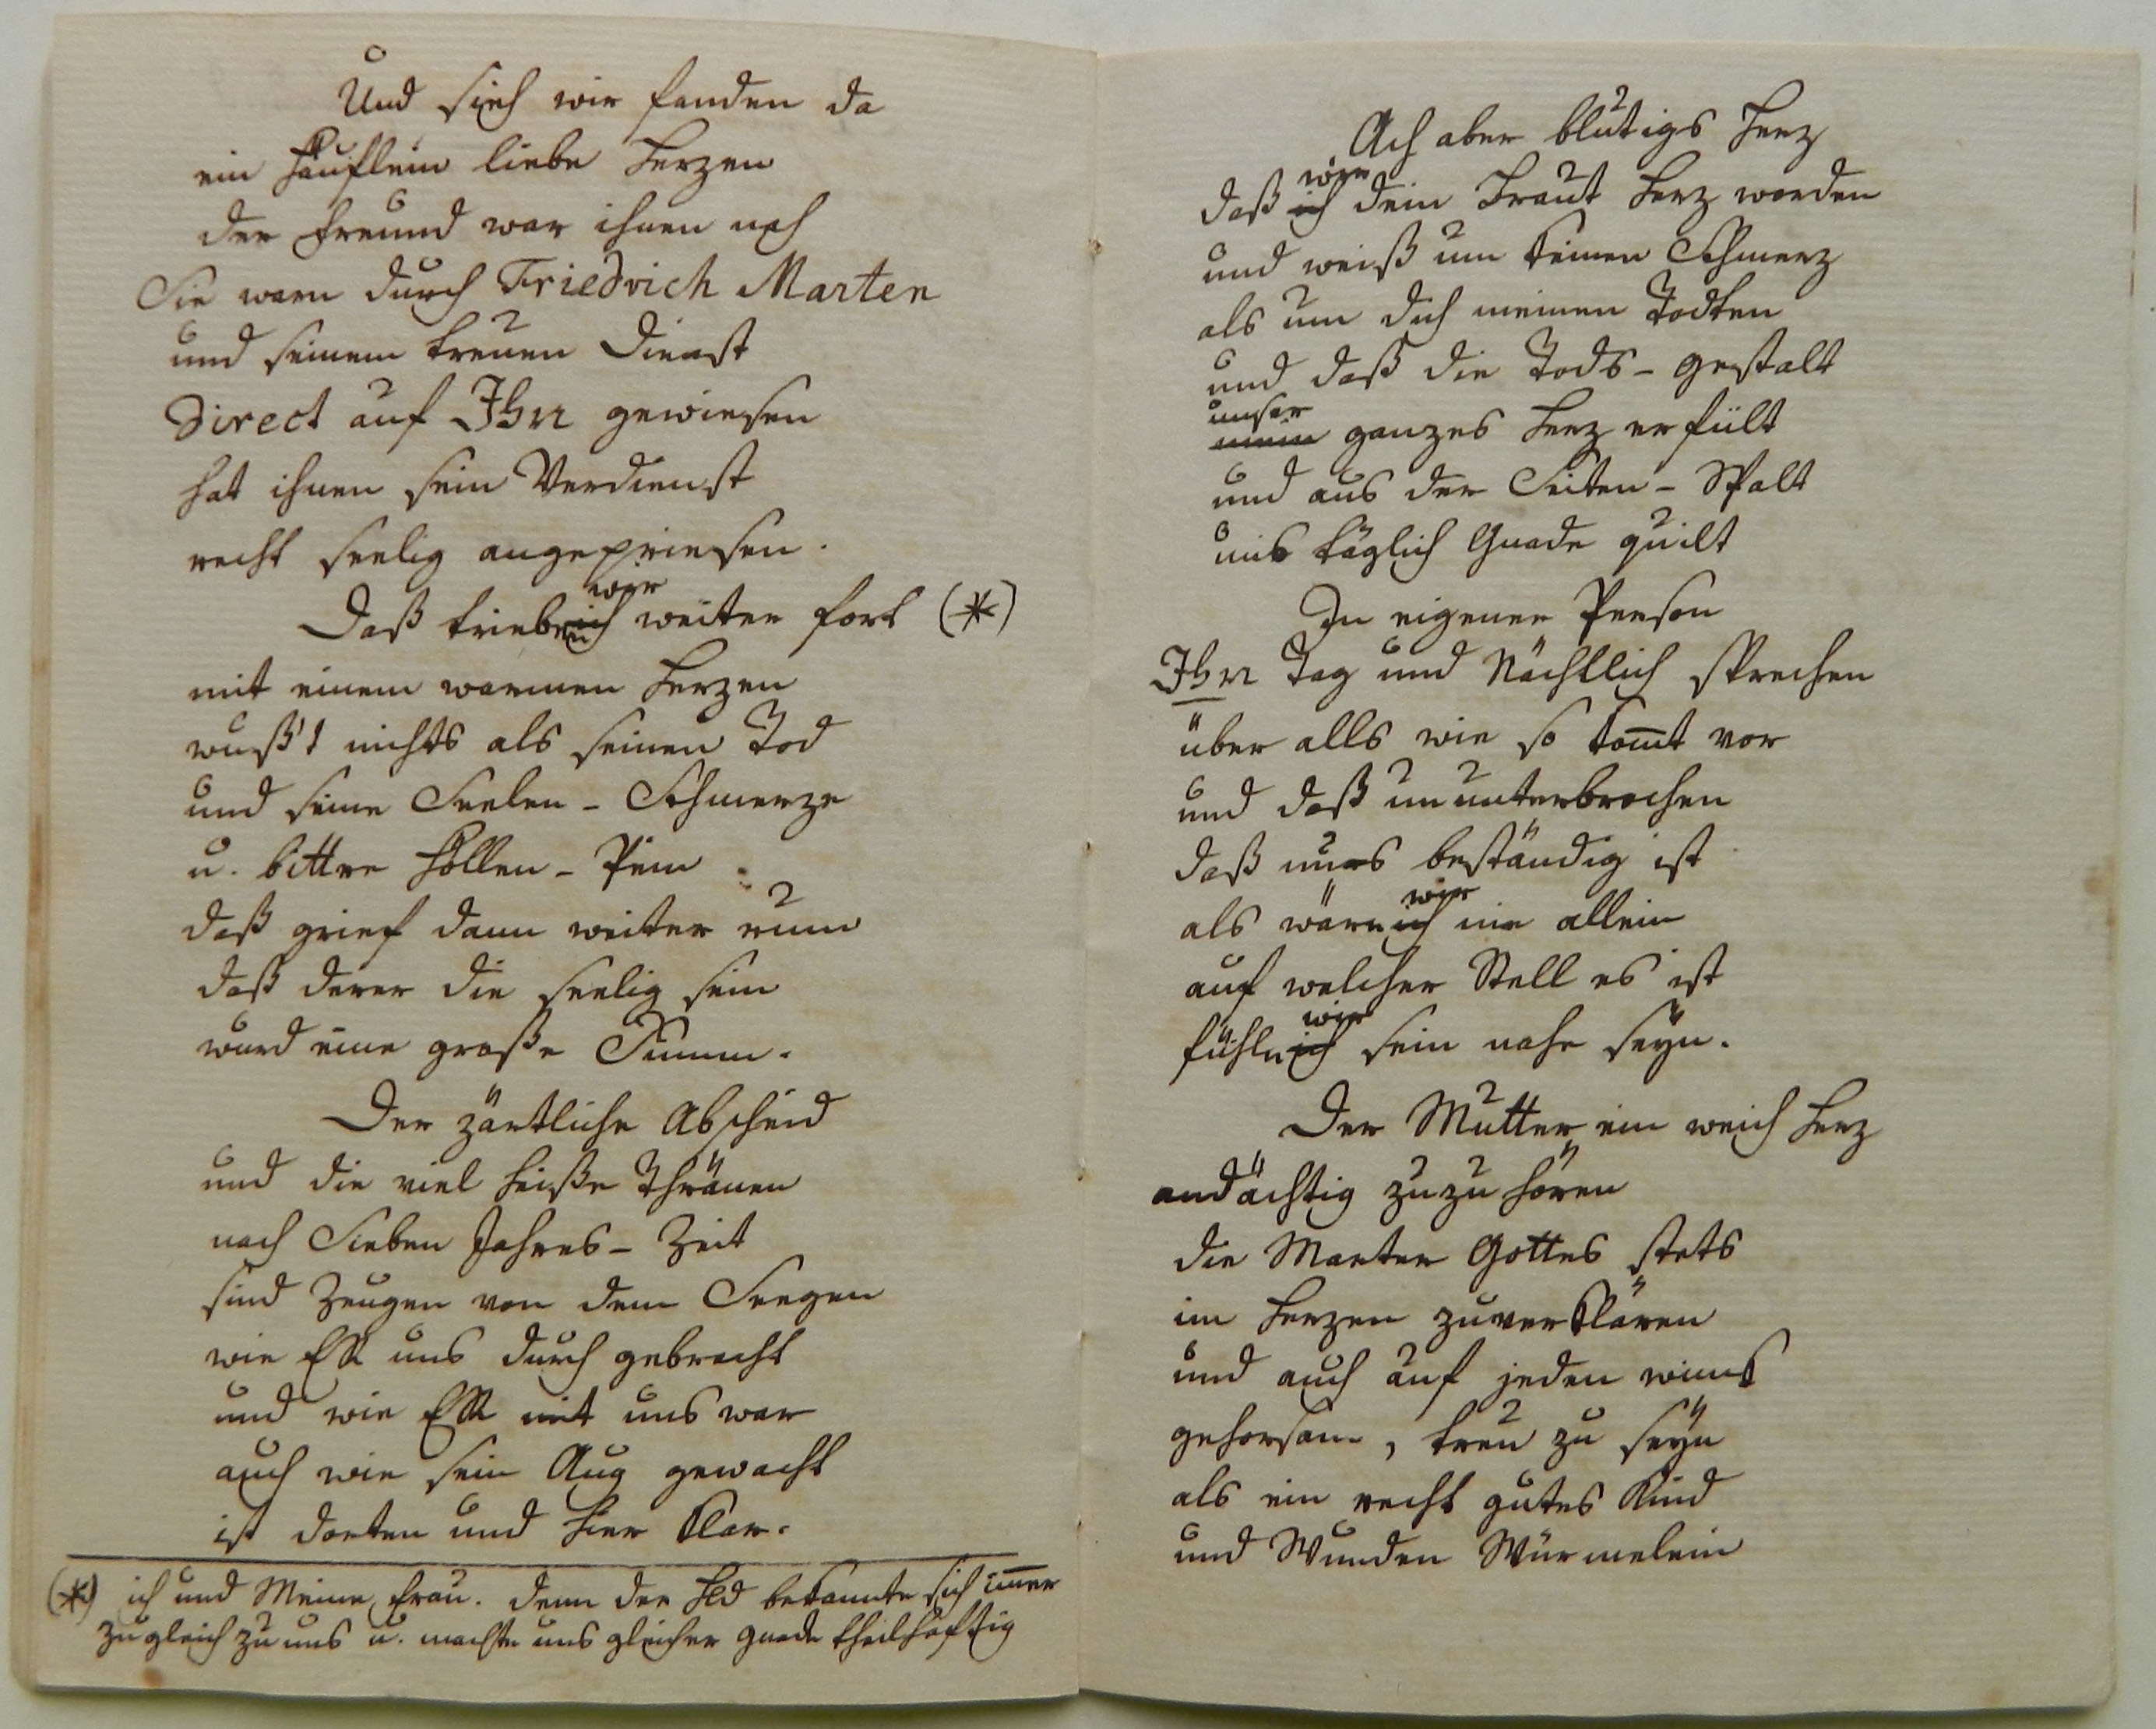 Und sieh wir fanden da
ein häuflein liebe Herzen
der freund war ihnen nah
Sie warn durch Friedrich Marten
und seinem treuen Dienst
Direct auf Ihn gewiesen
hat ihnen sein Verdienst
recht seelig angepriesen.
wir
Daß trieben ich weiter fort (*)
mit einem warmen Herzen
wußt nichts als seinen Tod
und seine Seelen-Schmerze
u. bittre höllen-Pein
daß grief dann weiter rum
daß derer die seelig sein
wurd eine große Summ.
Der zärtliche Abscheid
und die viel heiße Thränen
nach Sieben Jahres-Zeit
sind Zeugen von dem Seegen
wie Er uns durch gebracht
und wie Er mit uns war
auch wie sein Aug gewacht
ist dorten und hier klar.
(*) ich und Meine frau. denn der Hld bekannte sich im̄er
zugleich zu uns u. machte uns gleicher gnade theilhafftig
Ach aber blutigs Herz
wir
daß ich dein Braut Herz worden
und weiß um keinen Schmerz
als um dich meinen Todten
und daß die Tods-gestalt
unser
mein ganzes Herz erfült
und aus der Seiten-Spalt
uns täglich Gnade quilt
In eigener Person
Ihn Tag und Nächtlich sprechen
über alls wie so kom̄t vor
und daß ununterbrochen
daß uns beständig ist
wir
als wärn ich nie allein
auf welcher Stell es ist
wir
fühln ich sein nahe seÿn.
Der Mutter ein weich Herz
andächtig zuzuhören
die Marter Gottes stets
im Herzen zuverklären
und auch auf jeden winck
gehorsam, treu zu seÿn
als ein recht gutes Kind
und Wunden Würmelein